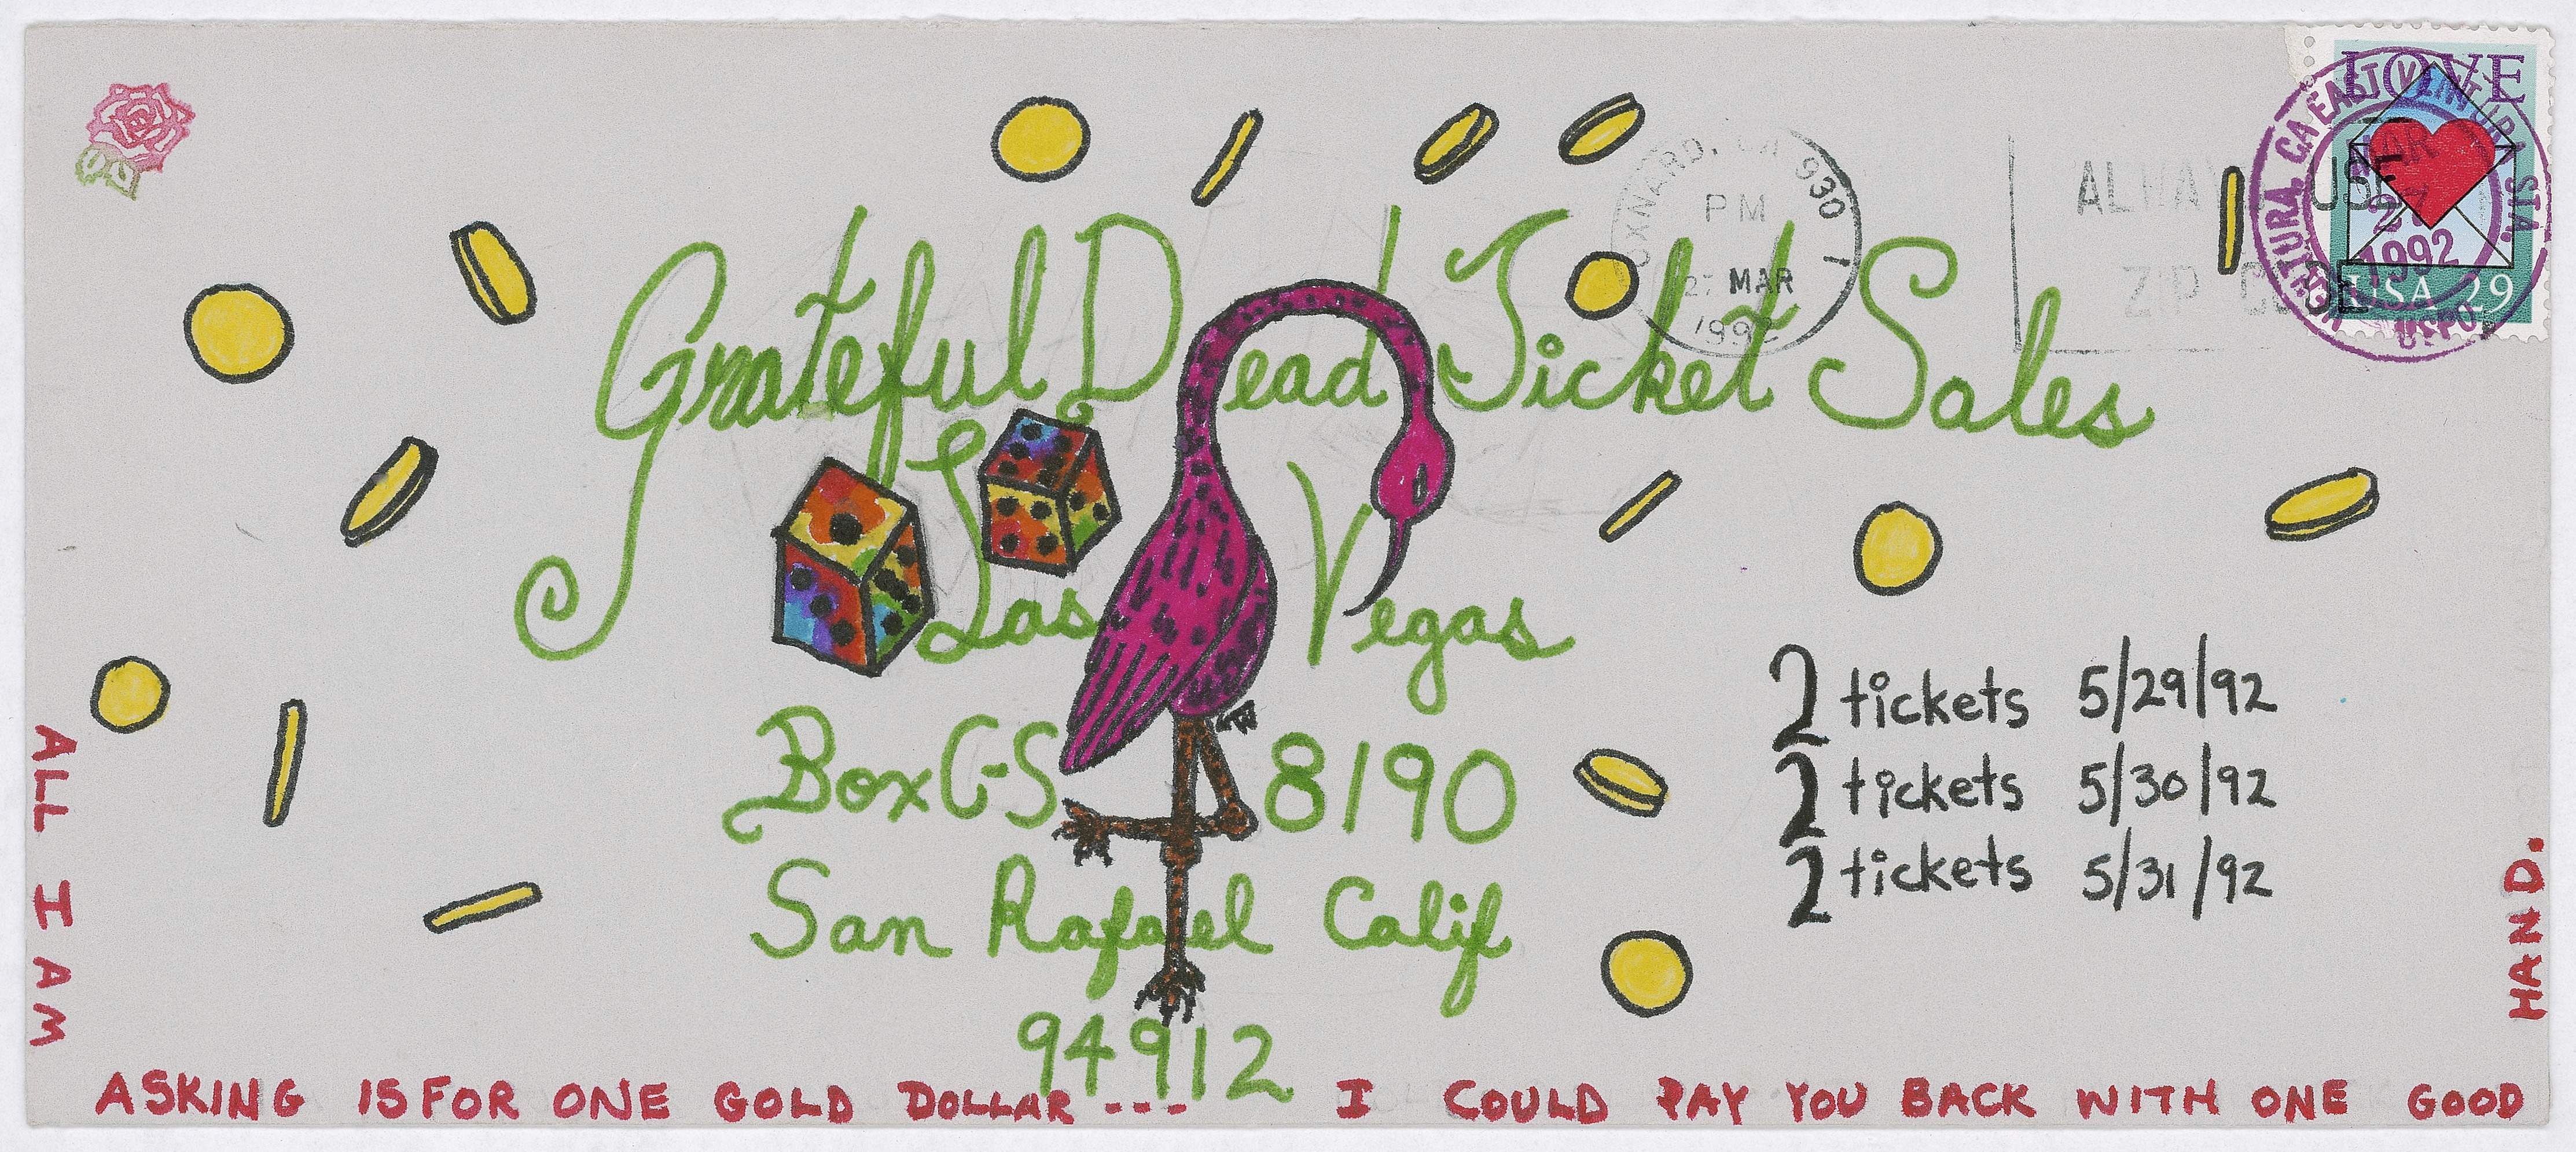 Grateful Dead Ticket Sales
Las Vegas
Box C-S 8190
San Rafael Calif
94912
2 tickets 5/29/92
2 tickets 5/30/92
2 tickets 5/31/92
ALL I M A
ASKING IS FOR ONE GOLD DOLLAR --- I COULD PAY YOU BACK WITH ONE GOOD
HAND.
OXNARD, CA 930
PM
27 MAR
1992
ALWAYS USE
ZIP CODE
LOVE
USA 29
VENTURA, CA EAST VENTURA STA.
MAR
27
1992
USPO